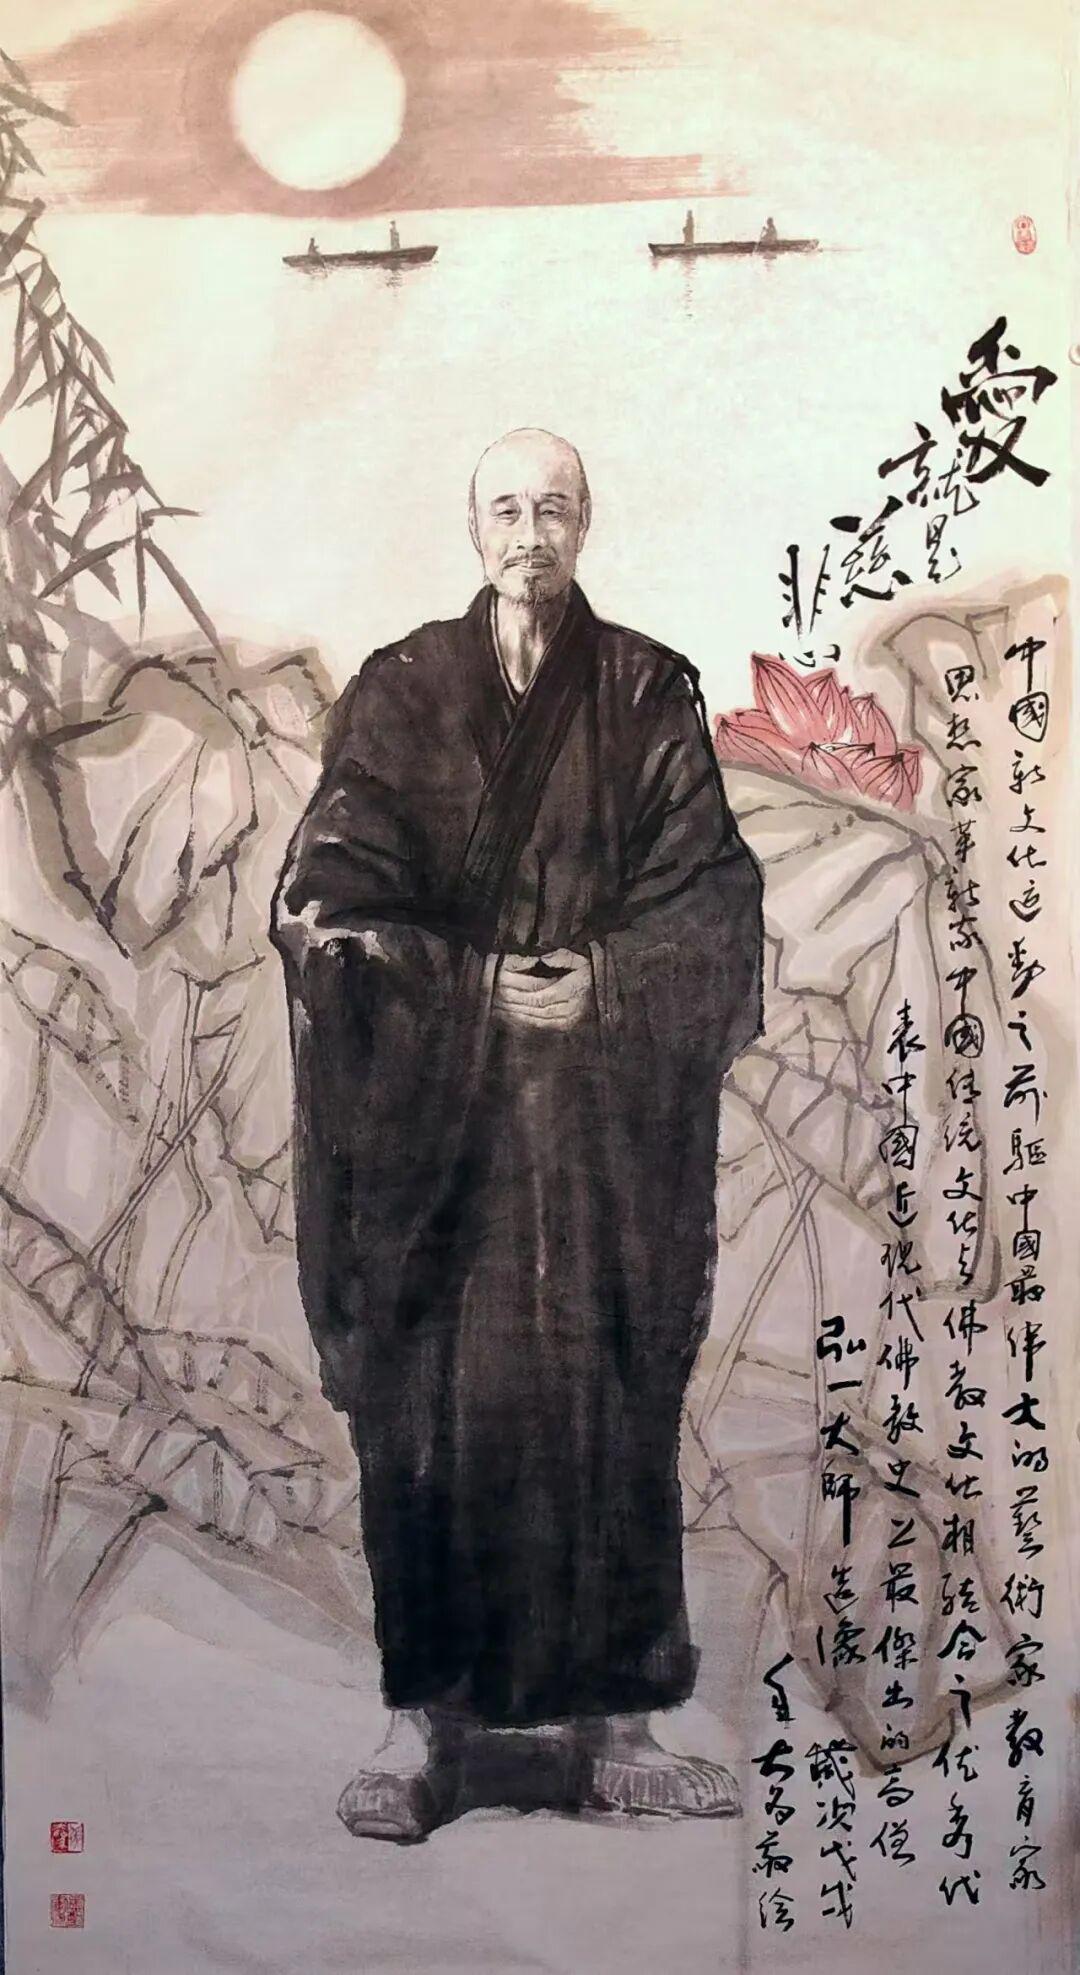 愛
就是
慈
悲
中國新文化运動之前驅中國最偉大的藝術家教育家
思想家革新家中國传統文化与佛教文化相結合之优秀代
表中國近现代佛教史上最傑出的高僧
弘一大師造像 歲次戊戌
大为敬绘